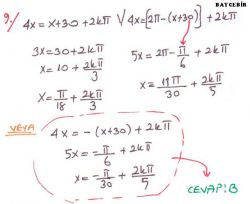 BAYCEBİR
9) 4x = x+30+2kπ V 4x = [2π-(x+30)]+2kπ
3x = 30+2kπ
x = 10 + 2kπ/3
x = π/18 + 2kπ/3
5x = 2π - π/6 + 2kπ
x = 11π/30 + 2kπ/5
VEYA
4x = -(x+30)+2kπ
5x = -π/6 + 2kπ
x = -π/30 + 2kπ/5
CEVAP: B